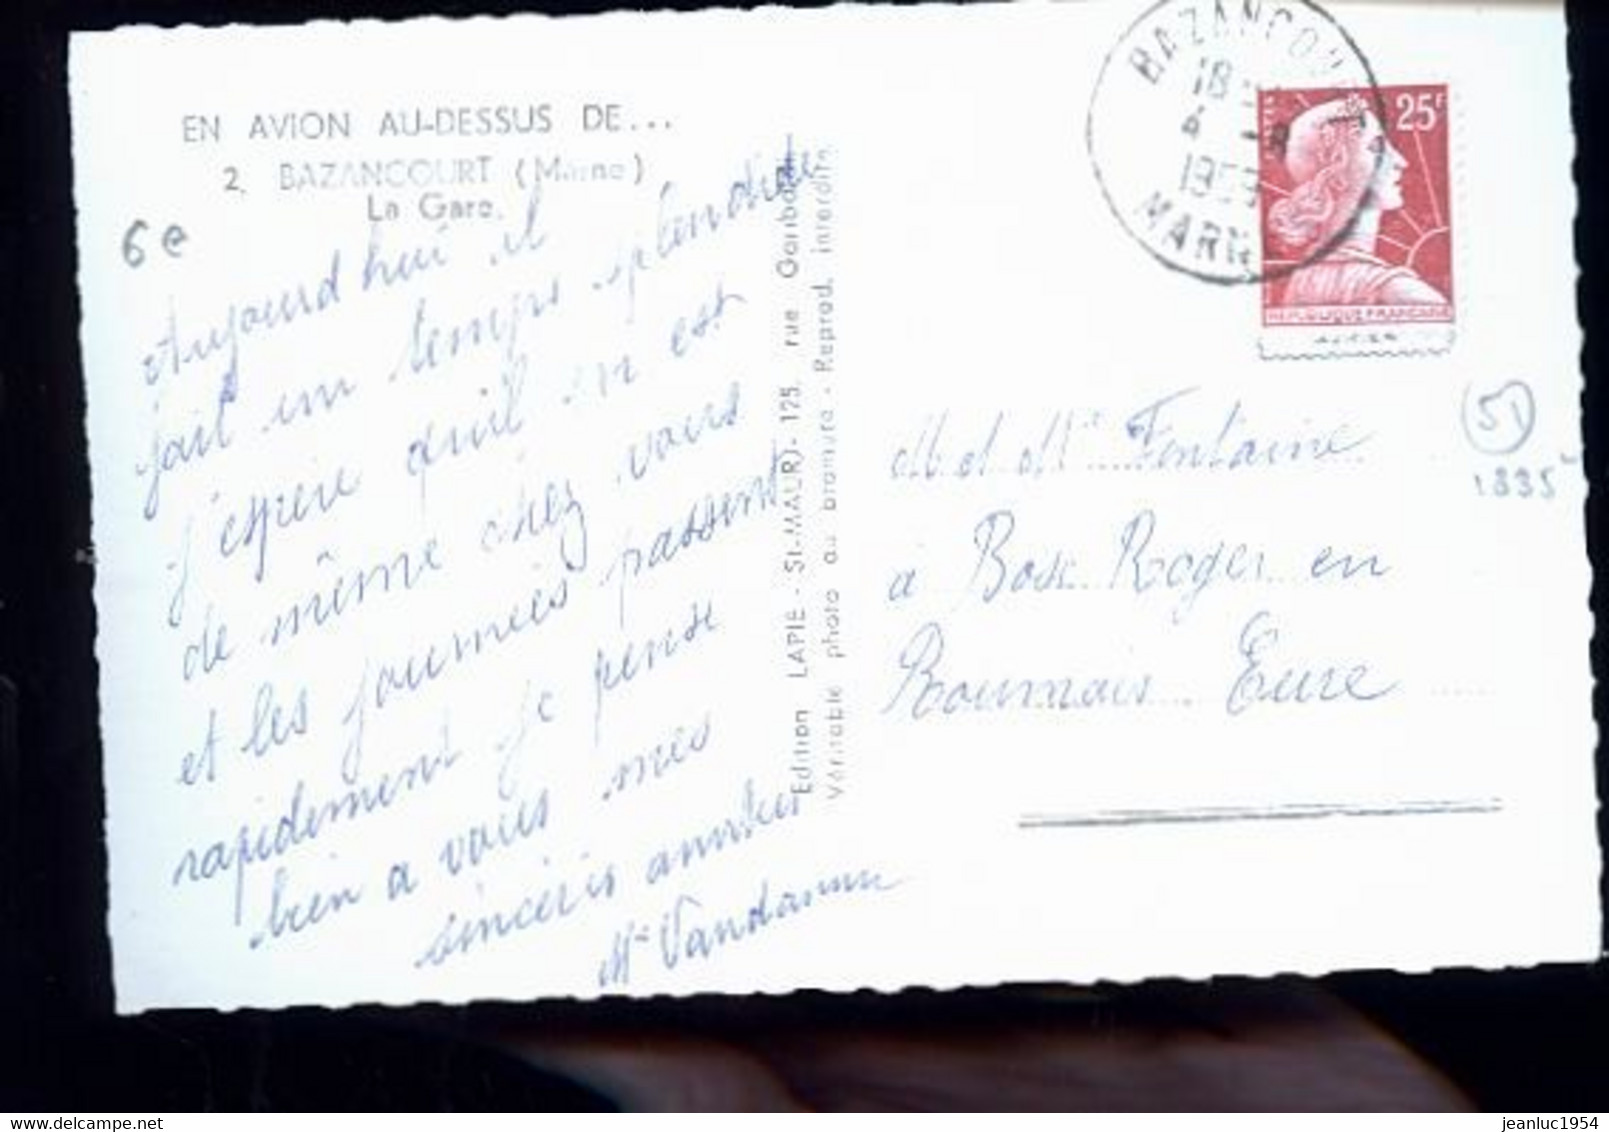 EN AVION AU-DESSUS DE...
2, BAZANCOURT (Marne)
La Gare.
6e
Aujourd'hui il
fait un temps splendide
j'espère qu'il en est
de même chez vous
et les journées passent
rapidement je pense
bien a vous mes
sincères amitiés
Vandamme
Edition LAPIE - St-MAUR - 125, rue Garibaldi
Véritable photo au bromure - Reprod. interdite
BAZANCOURT
18
4 -8
MARNE
25F
REPUBLIQUE FRANCAISE
M. et Mme Fontaine
à Bosc Roger en
Roumois Eure
51
1895
jeanluc1954